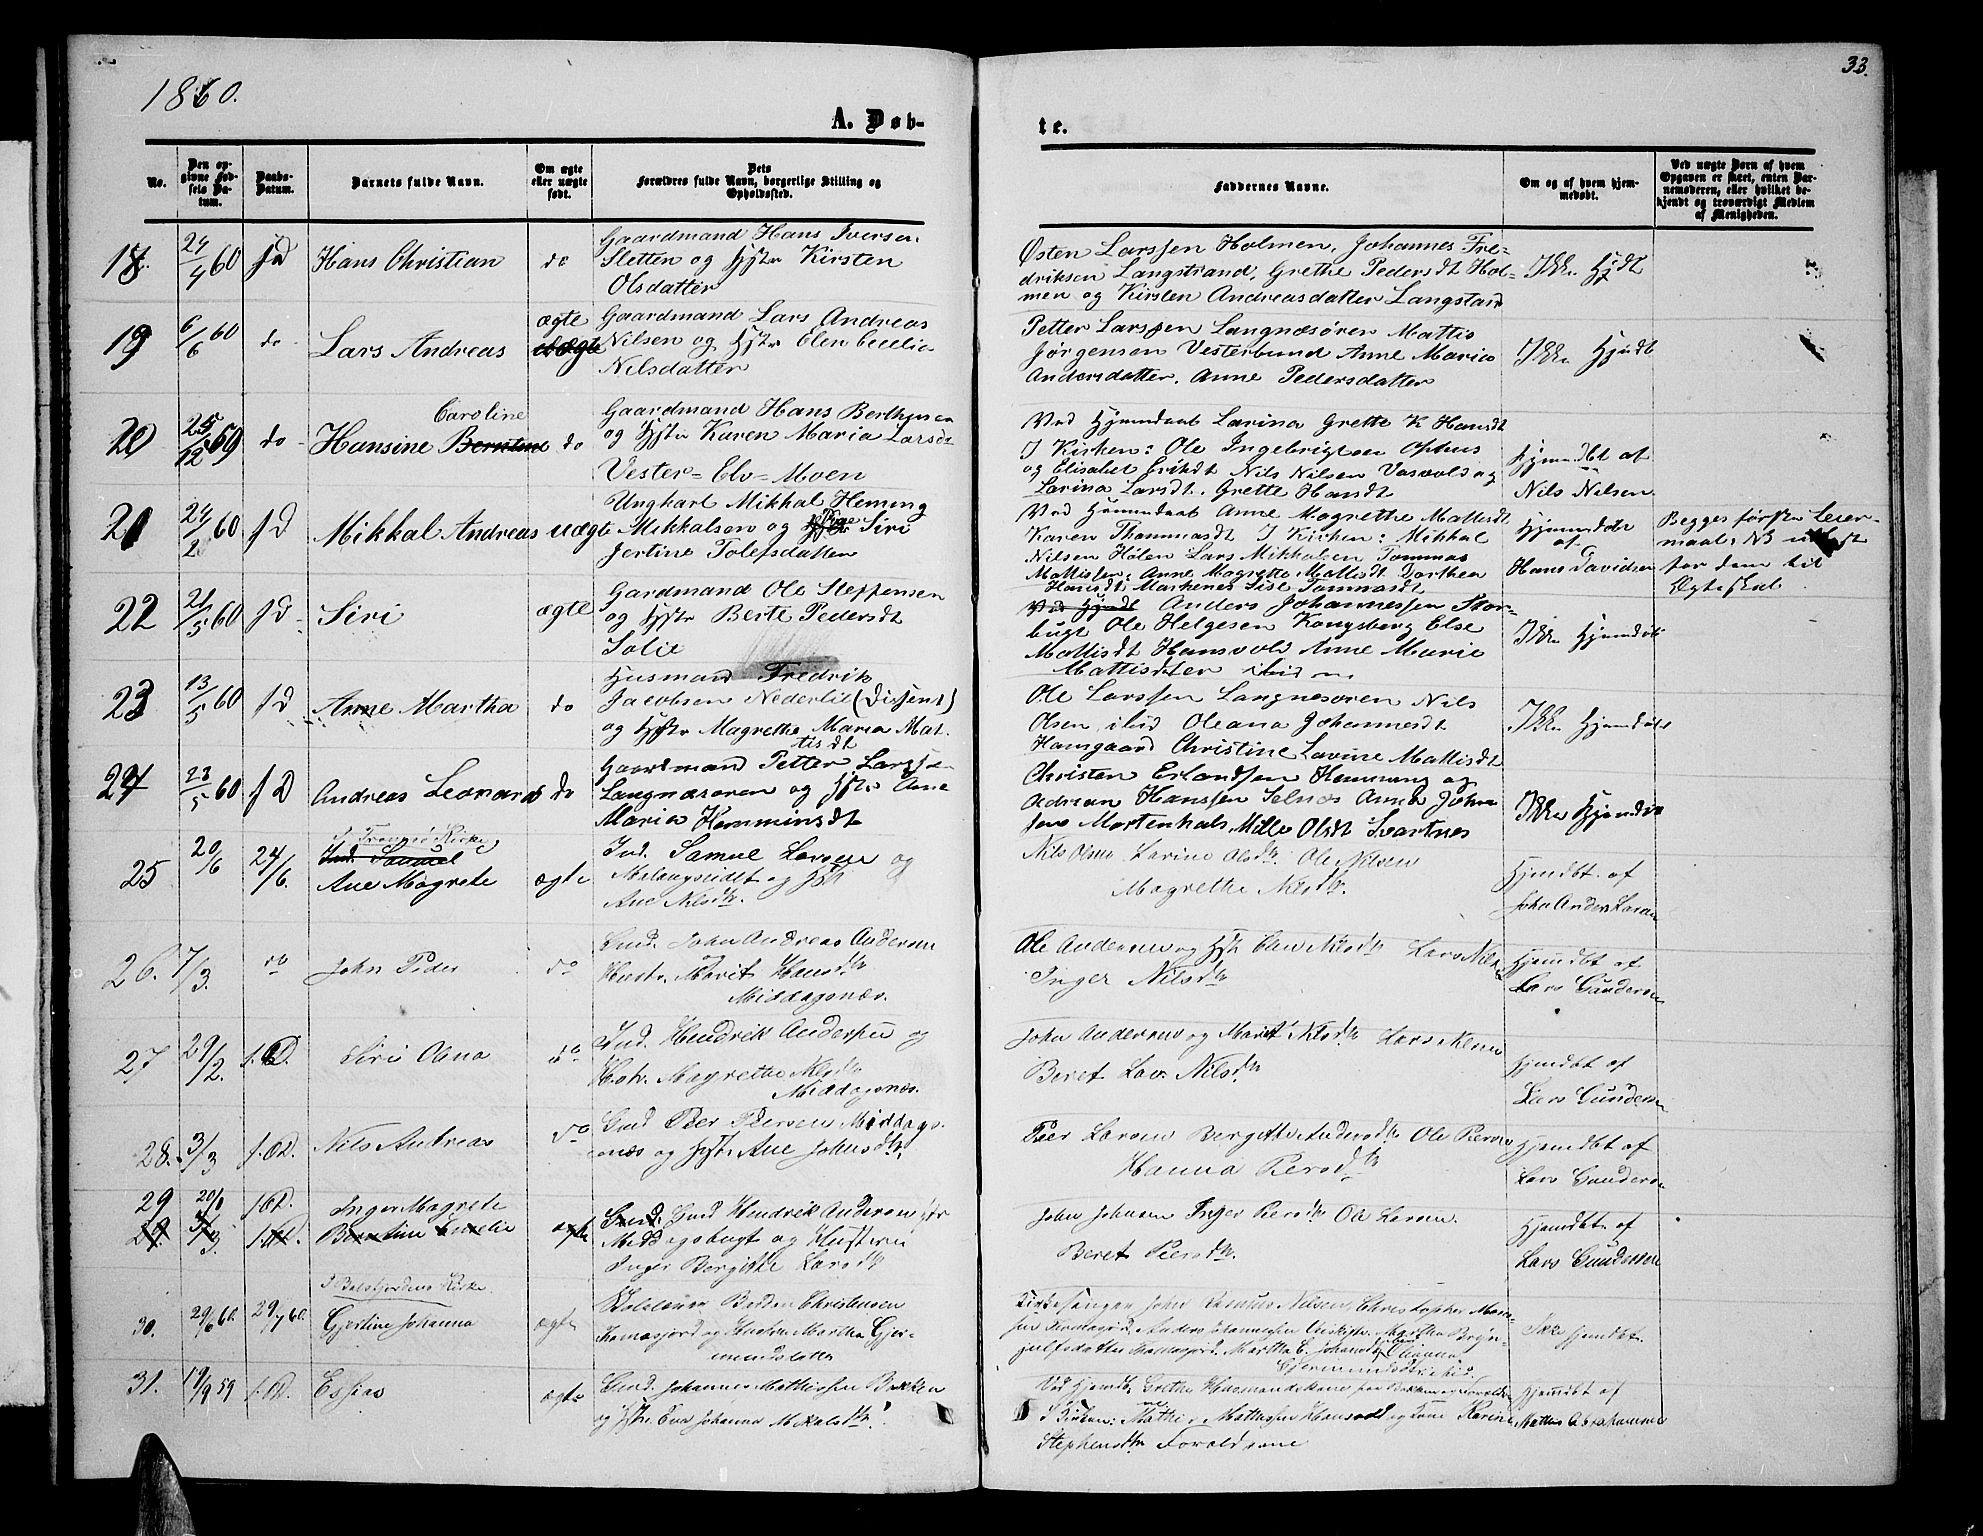 1860.
33.
A. Døb-
te.
No.
Den op-
givne Fød-
sels Da-
tum.
Daabs-
Datum.
Barnets fulde Navn.
Om ægte
eller uægte
født.
Dets
Forældres fulde Navn, borgerlige Stilling og
Opholdssted.
Faddernes Navne.
Om og af hvem hjem-
medøbt.
Ved uægte Børn af hvem
Opgaven er skeet, enten Bar-
nemoderen, eller hvilket be-
kjendt og troværdigt Medlem
af Menigheden.
18. 24/4 60 f D Hans Christian do
Gaardmand Hans Iversen
Sletten og Hstr Kirsten
Olsdatter
Østen Larssen Holmen, Johannes Fre-
driksen Langstrand, Grethe Pedersdt Hol-
men og Kirsten Andreasdatter Langstand
Ikke Hjdt
19 6/6 60 do Lars Andreas ægte
Gaardmand Lars Andreas
Nilsen og Hstr Elen Cecilia
Nilsdatter
Petter Larssen Langnæsören Mattis
Jørgensen Vesterbund Anne Maria
Andersdatter. Anne Pedersdatter
Ikke Hjmdt
20 25/12 59 do Hansine Caroline do
Gaardmand Hans Berthusen
og Hstr Karen Maria Larsdt
Vester=Elv=Moen
Ved Hjemdaab Larina Grette K Hansdt
I Kirken: Ole Ingebrigtsen Ophus
og Elisabet Eriksdt Nils Nilsen Vasvold og
Larina Larsdt. Grette Hansdt
Hjemdbt af
Nils Nilsen
21 24/2 60 f D Mikkal Andreas uægte
Ungkarl Mikkal Heming
Mikkalsen og Pige Siri
Jertine Tolefsdatter
Ved Hjemdaab Anne Magrethe Mattisdt
Karen Thommasdt I Kirken: Mikkal
Nilsen Hölen Lars Mikkalsen Tommas
Mattissen, Anne Magrette Mattisdt Dorthea
Hansdt Markenes Sise Tommasdt
Hjemdöbt
af
Hans Davidsen
Begges første Leier-
maal; NB
for dem til
Ægteskab
22 21/5 60 f D Siri ægte
Gardmand Ole Steffensen
og Hstr Berte Pedersdt
Solie
Ved Hjmdt Anders Johannessen Stor-
bugt Ole Helgesen Kongsberg Else
Mattisdt Hansvold Anne Marie
Mattisdtter ibid
Ikke Hjemdöb
23 13/5 60 f D Anne Martha do
Husmand Fredrik
Jacobsen Nederlie (Dissent)
og Hstr Magrethe Maria Mat-
tisdt
Ole Larssen Langnesören Nils
Olsen ibid Oleana Johannesdt
Hamgaard Christine Lavine Mattisdt
Ikke Hjemdöbt
24 23/5 60 f D Andreas Leonard do
Gaardmand Petter Larssen
Langnæsoren og Hstr Ane
Maria Hemminsdt
Christen Erlandsen Hemming og
Adrian Hanssen Selnæs Anne John
Mortenhals Mille Olsdt Svartnes
Ikke Hjemdöb
25 20/6 24/6. I Tromsö Kirke
Ane Magrete ægte
Ind. Samuel Larsen og
Malangseidt og Hst
Ane Nilsdtr.
Nils Olsen Larine Olsdtr. Ole Nilsen
Magrethe Nilsdtr.
Hjemdbt. af
John Anders Larsen
26. 7/3. do John Peder do
Ind. John Andreas Andersen
Hustr. Marit Hansdtr
Middagsnæs.
Ole Andersen og Hst Elen Nilsdtr Lars Nilsen
Inger Nilsdtr
Hjemdbt af
Lars Gundersen
27 29/2. f. D. Siri Olena do
Ind. Hendrik Andersen og
Hstr. Magrethe Nilsdtr
Middagsnæs.
John Andersen og Marit Nilsdtr Lars Nilsen
Beret Lav. Nilsdtr
Hjemdbt af
Lars Gundersen
28. 3/3 f. D. Nils Andreas do
Ind Peer Peersen Middags-
næs og Hstr. Ane Johnsdtr.
Peer Larsen Bergitte Andersdtr Ole Persen
Hanna Persdtr
Hjemdbt af
Lars Gundersen
29 20/1 f. D. Inger Magrete
Berntine Amelie ægte
Ind. Ind Hendrik Andersen
Middagsbugt og Hustrue
Inger Bergitte Larsdtr
John Johnsen Inger Persdtr Ole Larsen.
Beret Peersdtr.
Hjemdbt. af
Lars Gundersen
I Balsfjordens Kirke.
30. 29/6 60. 29/7 60. Gjertine Johanna ægte
Christensen
Ramafjord og Hustru Martha Gjer-
mundsdatter
Kirkesanger John Rasmus Nilsen, Christopher
Ramafjord, Anders Johannessen
julfsdatter Ramafjord, Martha E.
Gjermundsdtr ibid.
Ikke hjemdbt.
31. 19/9 59 f. D. Esias ægte
Ind. Johannes Mathissen Bakken
og Hstr. Eva Johanna Mikkelsdtr.
Ved Hjemdb. Grethe Husmandskone paa Bakken og Forældre
I Kirken: Mathis Mathissen Hansvold og Kone Karine
Stephensdtr Forældrene
Hjemdbt af
Mathias Abrahamsen